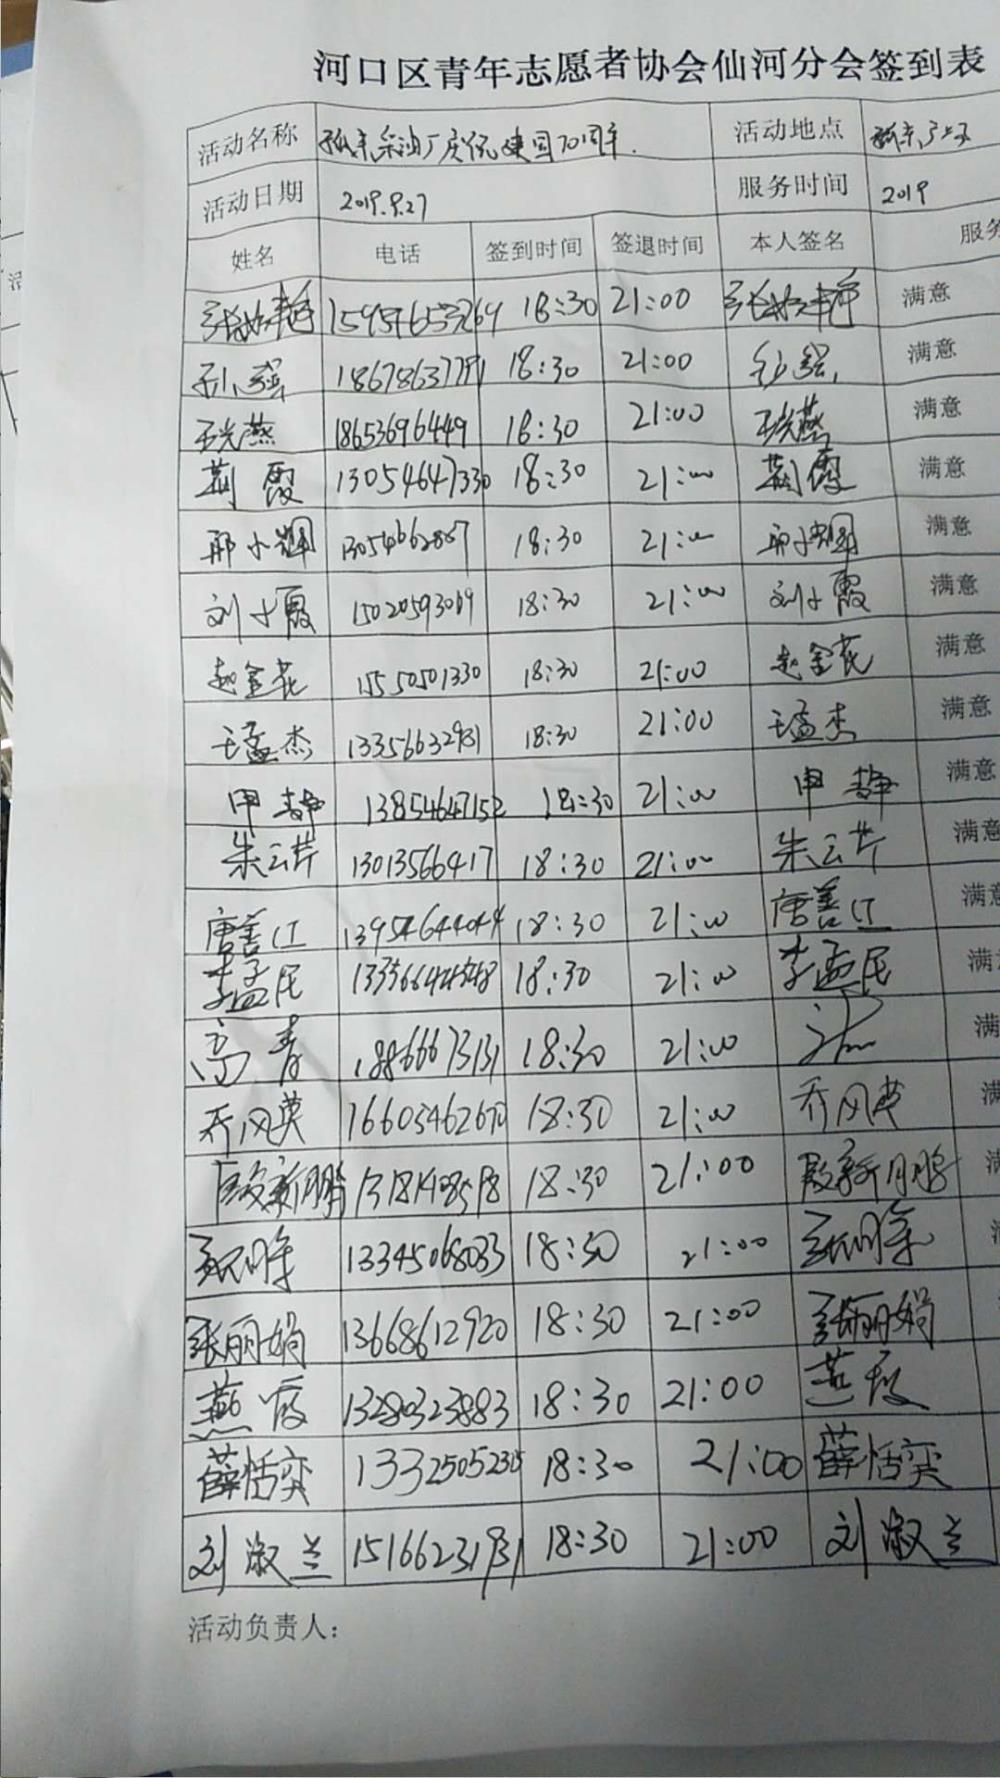 河口区青年志愿者协会仙河分会签到表
活动名称 孤东采油厂庆祝建国70周年 活动地点 孤东
活动日期 2019.9.27 服务时间 2019
姓名 电话 签到时间 签退时间 本人签名 服务
18:30 21:00 满意
18:30 21:00 满意
王光燕 18653696449 18:30 21:00 王光燕 满意
荆霞 13054647330 18:30 21:00 荆霞 满意
邢小辉 13054662887 18:30 21:00 邢小辉 满意
刘小霞 15020593069 18:30 21:00 刘小霞 满意
赵金花 15550501330 18:30 21:00 赵金花 满意
王孟杰 13356632931 18:30 21:00 王孟杰 满意
申静 13854647152 18:30 21:00 申静 满意
朱云芹 13013566417 18:30 21:00 朱云芹 满意
唐善江 13954644044 18:30 21:00 唐善江 满意
李孟民 18:30 21:00 李孟民 满意
高青 18866673131 18:30 21:00 满
乔风英 16605462670 18:30 21:00 乔风英 满
段新鹏 18:30 21:00 段新鹏 满
13345068033 18:30 21:00
张丽娟 13668612920 18:30 21:00 张丽娟
燕霞 13280323883 18:30 21:00 燕霞
薛恬奕 18:30 21:00 薛恬奕
刘淑兰 15166231931 18:30 21:00 刘淑兰
活动负责人：